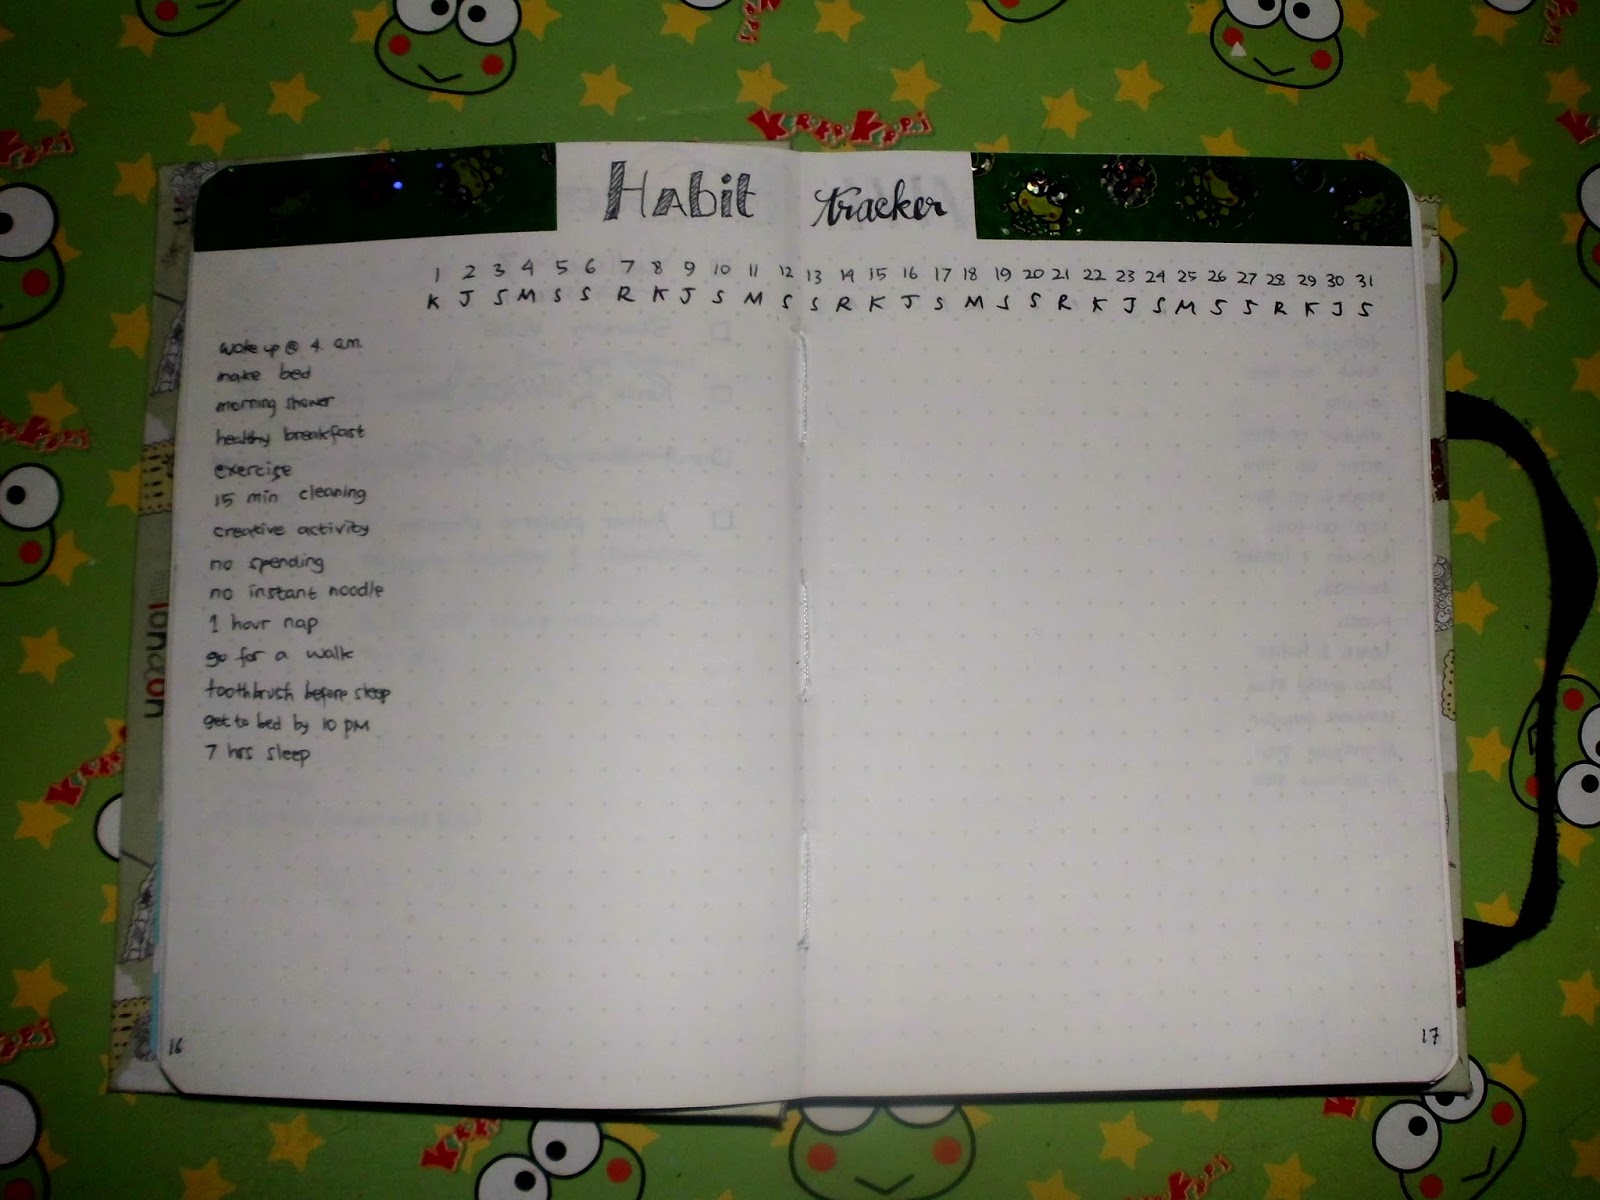 KeroKeroKeroppi
Habit tracker
1 2 3 4 5 6 7 8 9 10 11 12 13 14 15 16 17 18 19 20 21 22 23 24 25 26 27 28 29 30 31
K J S M S S R K J S M S S R K J S M S S R K J S M S S R K J S
wake up @ 4 am
make bed
morning shower
healthy breakfast
exercise
15 min cleaning
creative activity
no spending
no instant noodle
1 hour nap
go for a walk
toothbrush before sleep
get to bed by 10 PM
7 hrs sleep
london
16
17